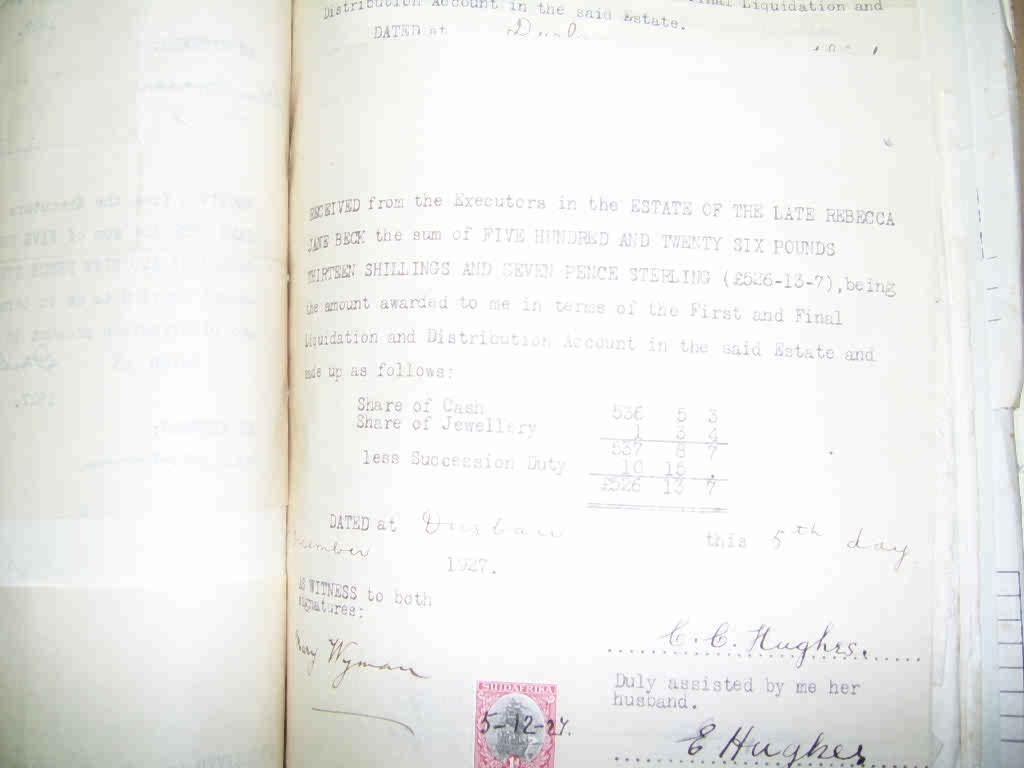 Final Liquidation and
Distribution Account in the said Estate.
DATED at
RECEIVED from the Executors in the ESTATE OF THE LATE REBECCA
JANE BECK the sum of FIVE HUNDRED AND TWENTY SIX POUNDS
THIRTEEN SHILLINGS AND SEVEN PENCE STERLING (£526-13-7), being
the amount awarded to me in terms of the First and Final
Liquidation and Distribution Account in the said Estate and
made up as follows:
Share of Cash 536 5 3
Share of Jewellery 1 3 4
537 8 7
less Succession Duty 10 15 .
£526 13 7
DATED at Durban this 5th day
December 1927.
AS WITNESS to both
signatures:
C. C. Hughes.
Mary Wyman
Duly assisted by me her
husband.
SUIDAFRIKA
5-12-27.
E Hughes